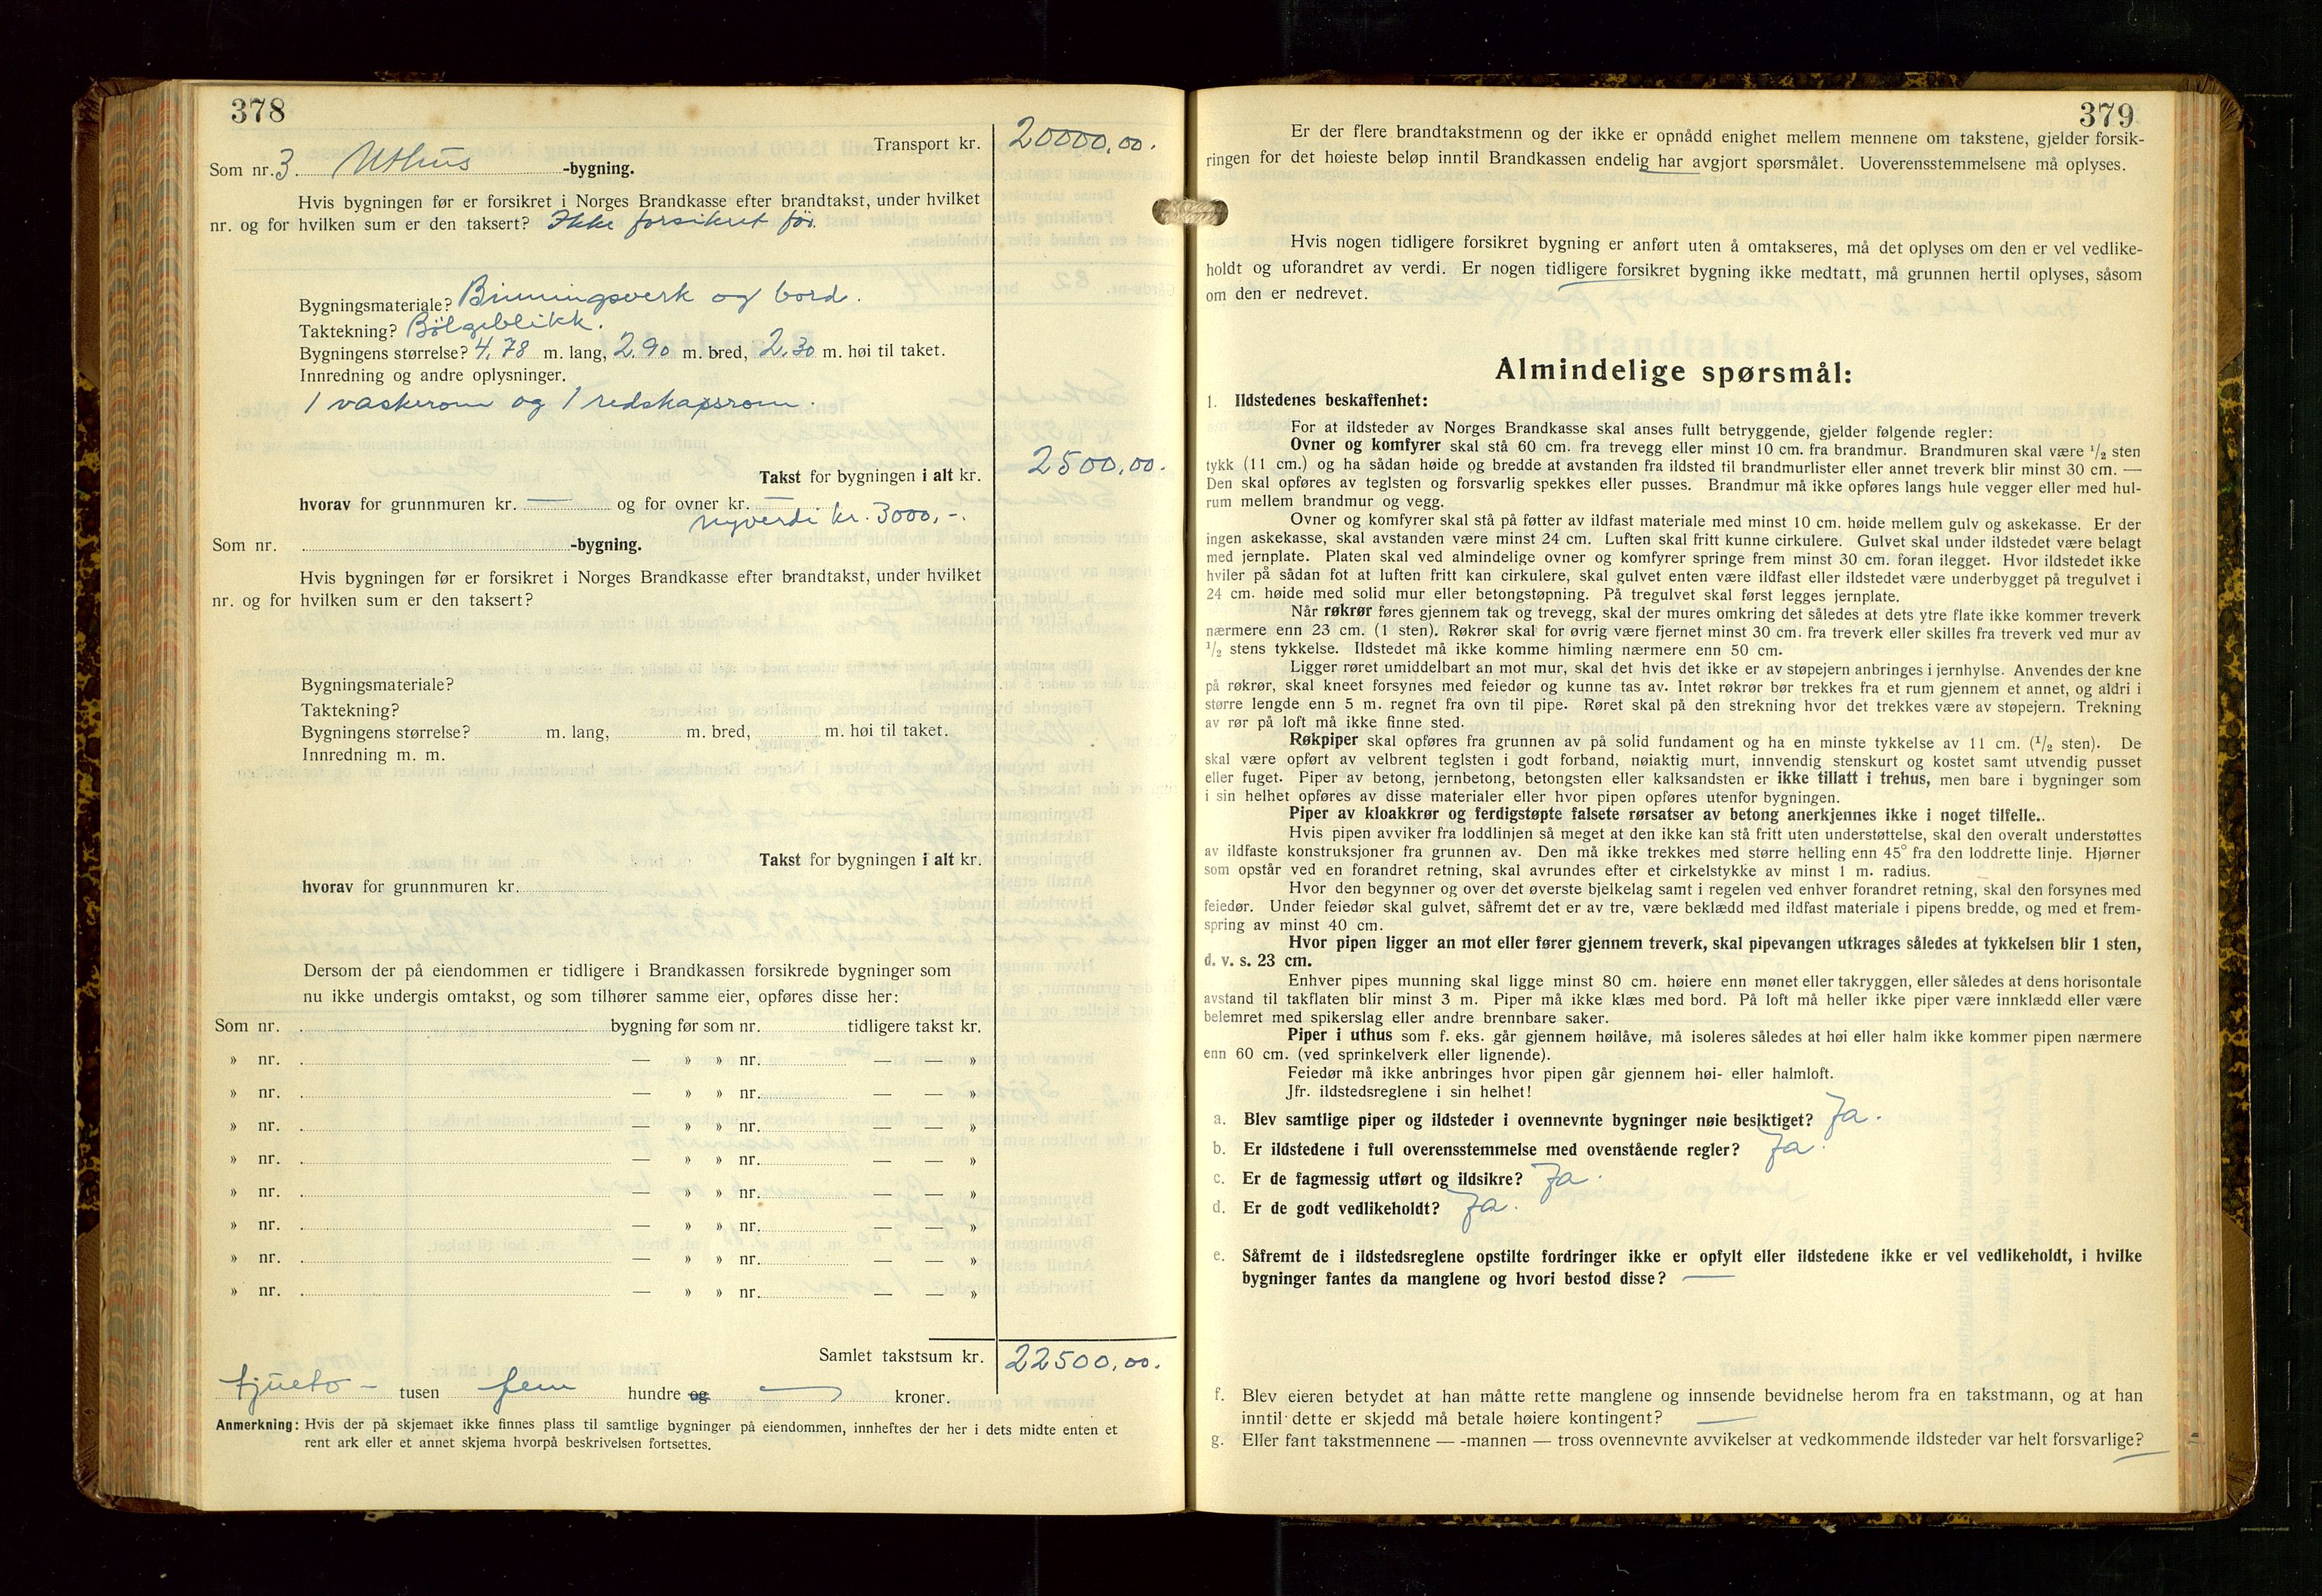 378
Transport kr. 20000,00.
Som nr. 3. Uthus -bygning.
Hvis bygningen før er forsikret i Norges Brandkasse efter brandtakst, under hvilket
nr. og for hvilken sum er den taksert? Ikke forsikret før.
Bygningsmateriale? Binningsverk og bord.
Taktekning? Bölgeblikk.
Bygningens størrelse? 4,78 m. lang, 2,90 m. bred, 2,30 m. høi til taket.
Innredning og andre oplysninger.
1 vaskerom og 1 redskapsrom.
Takst for bygningen i alt kr. 2500,00.
hvorav for grunnmuren kr. — og for ovner kr. —
nyverdi kr. 3000,-.
Som nr. -bygning.
Hvis bygningen før er forsikret i Norges Brandkasse efter brandtakst, under hvilket
nr. og for hvilken sum er den taksert?
Bygningsmateriale?
Taktekning?
Bygningens størrelse? m. lang, m. bred, m. høi til taket.
Innredning m. m.
Takst for bygningen i alt kr.
hvorav for grunnmuren kr.
Dersom der på eiendommen er tidligere i Brandkassen forsikrede bygninger som
nu ikke undergis omtakst, og som tilhører samme eier, opføres disse her:
Som nr. bygning før som nr. tidligere takst kr.
» nr. — » » nr. — — »
» nr. — » » nr. — — »
» nr. — » » nr. — — »
» nr. — » » nr. — — »
» nr. — » » nr. — — »
» nr. — » » nr. — — »
» nr. — » » nr. — — »
» nr. — » » nr. — — »
Samlet takstsum kr. 22500,00.
tjueto – tusen fem hundre og — kroner.
Anmerkning: Hvis der på skjemaet ikke finnes plass til samtlige bygninger på eiendommen, innheftes der her i dets midte enten et
rent ark eller et annet skjema hvorpå beskrivelsen fortsettes.
379
Er der flere brandtakstmenn og der ikke er opnådd enighet mellem mennene om takstene, gjelder forsik-
ringen for det høieste beløp inntil Brandkassen endelig har avgjort spørsmålet. Uoverensstemmelsene må oplyses.
Hvis nogen tidligere forsikret bygning er anført uten å omtakseres, må det oplyses om den er vel vedlike-
holdt og uforandret av verdi. Er nogen tidligere forsikret bygning ikke medtatt, må grunnen hertil oplyses, såsom
om den er nedrevet.
Almindelige spørsmål:
1. Ildstedenes beskaffenhet:
For at ildsteder av Norges Brandkasse skal anses fullt betryggende, gjelder følgende regler:
Ovner og komfyrer skal stå 60 cm. fra trevegg eller minst 10 cm. fra brandmur. Brandmuren skal være 1/2 sten
tykk (11 cm.) og ha sådan høide og bredde at avstanden fra ildsted til brandmurlister eller annet treverk blir minst 30 cm. —
Den skal opføres av teglsten og forsvarlig spekkes eller pusses. Brandmur må ikke opføres langs hule vegger eller med hul-
rum mellem brandmur og vegg.
Ovner og komfyrer skal stå på føtter av ildfast materiale med minst 10 cm. høide mellem gulv og askekasse. Er der
ingen askekasse, skal avstanden være minst 24 cm. Luften skal fritt kunne cirkulere. Gulvet skal under ildstedet være belagt
med jernplate. Platen skal ved almindelige ovner og komfyrer springe frem minst 30 cm. foran ilegget. Hvor ildstedet ikke
hviler på sådan fot at luften fritt kan cirkulere, skal gulvet enten være ildfast eller ildstedet være underbygget på tregulvet i
24 cm. høide med solid mur eller betongstøpning. På tregulvet skal først legges jernplate.
Når røkrør føres gjennem tak og trevegg, skal der mures omkring det således at dets ytre flate ikke kommer treverk
nærmere enn 23 cm. (1 sten). Røkrør skal for øvrig være fjernet minst 30 cm. fra treverk eller skilles fra treverk ved mur av
1/2 stens tykkelse. Ildstedet må ikke komme himling nærmere enn 50 cm.
Ligger røret umiddelbart an mot mur, skal det hvis det ikke er av støpejern anbringes i jernhylse. Anvendes der kne
på røkrør, skal kneet forsynes med feiedør og kunne tas av. Intet røkrør bør trekkes fra et rum gjennem et annet, og aldri i
større lengde enn 5 m. regnet fra ovn til pipe. Røret skal på den strekning hvor det trekkes være av støpejern. Trekning
av rør på loft må ikke finne sted.
Røkpiper skal opføres fra grunnen av på solid fundament og ha en minste tykkelse av 11 cm. (1/2 sten). De
skal være opført av velbrent teglsten i godt forband, nøiaktig murt, innvendig stenskurt og kostet samt utvendig pusset
eller fuget. Piper av betong, jernbetong, betongsten eller kalksandsten er ikke tillatt i trehus, men bare i bygninger som
i sin helhet opføres av disse materialer eller hvor pipen opføres utenfor bygningen.
Piper av kloakkrør og ferdigstøpte falsete rørsatser av betong anerkjennes ikke i noget tilfelle..
Hvis pipen avviker fra loddlinjen så meget at den ikke kan stå fritt uten understøttelse, skal den overalt understøttes
av ildfaste konstruksjoner fra grunnen av. Den må ikke trekkes med større helling enn 45° fra den loddrette linje. Hjørner
som opstår ved en forandret retning, skal avrundes efter et cirkelstykke av minst 1 m. radius.
Hvor den begynner og over det øverste bjelkelag samt i regelen ved enhver forandret retning, skal den forsynes med
feiedør. Under feiedør skal gulvet, såfremt det er av tre, være beklædd med ildfast materiale i pipens bredde, og med et frem-
spring av minst 40 cm.
Hvor pipen ligger an mot eller fører gjennem treverk, skal pipevangen utkrages således at tykkelsen blir 1 sten,
d. v. s. 23 cm.
Enhver pipes munning skal ligge minst 80 cm. høiere enn mønet eller takryggen, eller således at dens horisontale
avstand til takflaten blir minst 3 m. Piper må ikke klæs med bord. På loft må heller ikke piper være innklædd eller være
belemret med spikerslag eller andre brennbare saker.
Piper i uthus som f. eks. går gjennem høilåve, må isoleres således at høi eller halm ikke kommer pipen nærmere
enn 60 cm. (ved sprinkelverk eller lignende).
Feiedør må ikke anbringes hvor pipen går gjennem høi- eller halmloft.
Jfr. ildstedsreglene i sin helhet!
a. Blev samtlige piper og ildsteder i ovennevnte bygninger nøie besiktiget? Ja.
b. Er ildstedene i full overensstemmelse med ovenstående regler? Ja.
c. Er de fagmessig utført og ildsikre? Ja.
d. Er de godt vedlikeholdt? Ja.
e. Såfremt de i ildstedsreglene opstilte fordringer ikke er opfylt eller ildstedene ikke er vel vedlikeholdt, i hvilke
bygninger fantes da manglene og hvori bestod disse? —
f. Blev eieren betydet at han måtte rette manglene og innsende bevidnelse herom fra en takstmann, og at han
inntil dette er skjedd må betale høiere kontingent? —
g. Eller fant takstmennene — -mannen — tross ovennevnte avvikelser at vedkommende ildsteder var helt forsvarlige? —